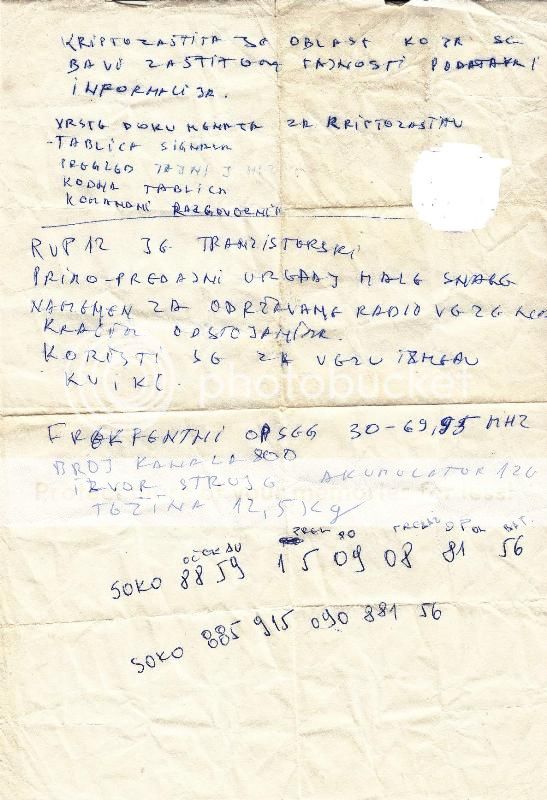 KRIPTOZAŠTITA JE OBLAST KOJA SE
BAVI ZAŠTITOM TAJNOSTI PODATAKA I
INFORMACIJA.
VRSTE DOKUMENATA ZA KRIPTOZAŠTITU
-TABLICA SIGNALA
PREGLED TAJNI
KODNA TABLICA
KOMANDNI RAZGOVORNIK
RUP 12 JE TRANZISTORSKI
PRIMO-PREDAJNI UREĐAJ MALE SNAGE
NAMENJEN ZA ODRŽAVANJE RADIO VEZE NA
KRAĆIM ODSTOJANJIMA.
KORISTI SE ZA VEZU IZMEĐU
FREKFENTNI OPSEG 30-69,95 MHZ
BROJ KANALA 800
IZVOR STRUJE AKUMULATOR
TEŽINA 12,5 kg
OČEKUJU BAT.
SOKO 88 59 15 09 08 81 56
SOKO 885 915 090 881 56
photobucket